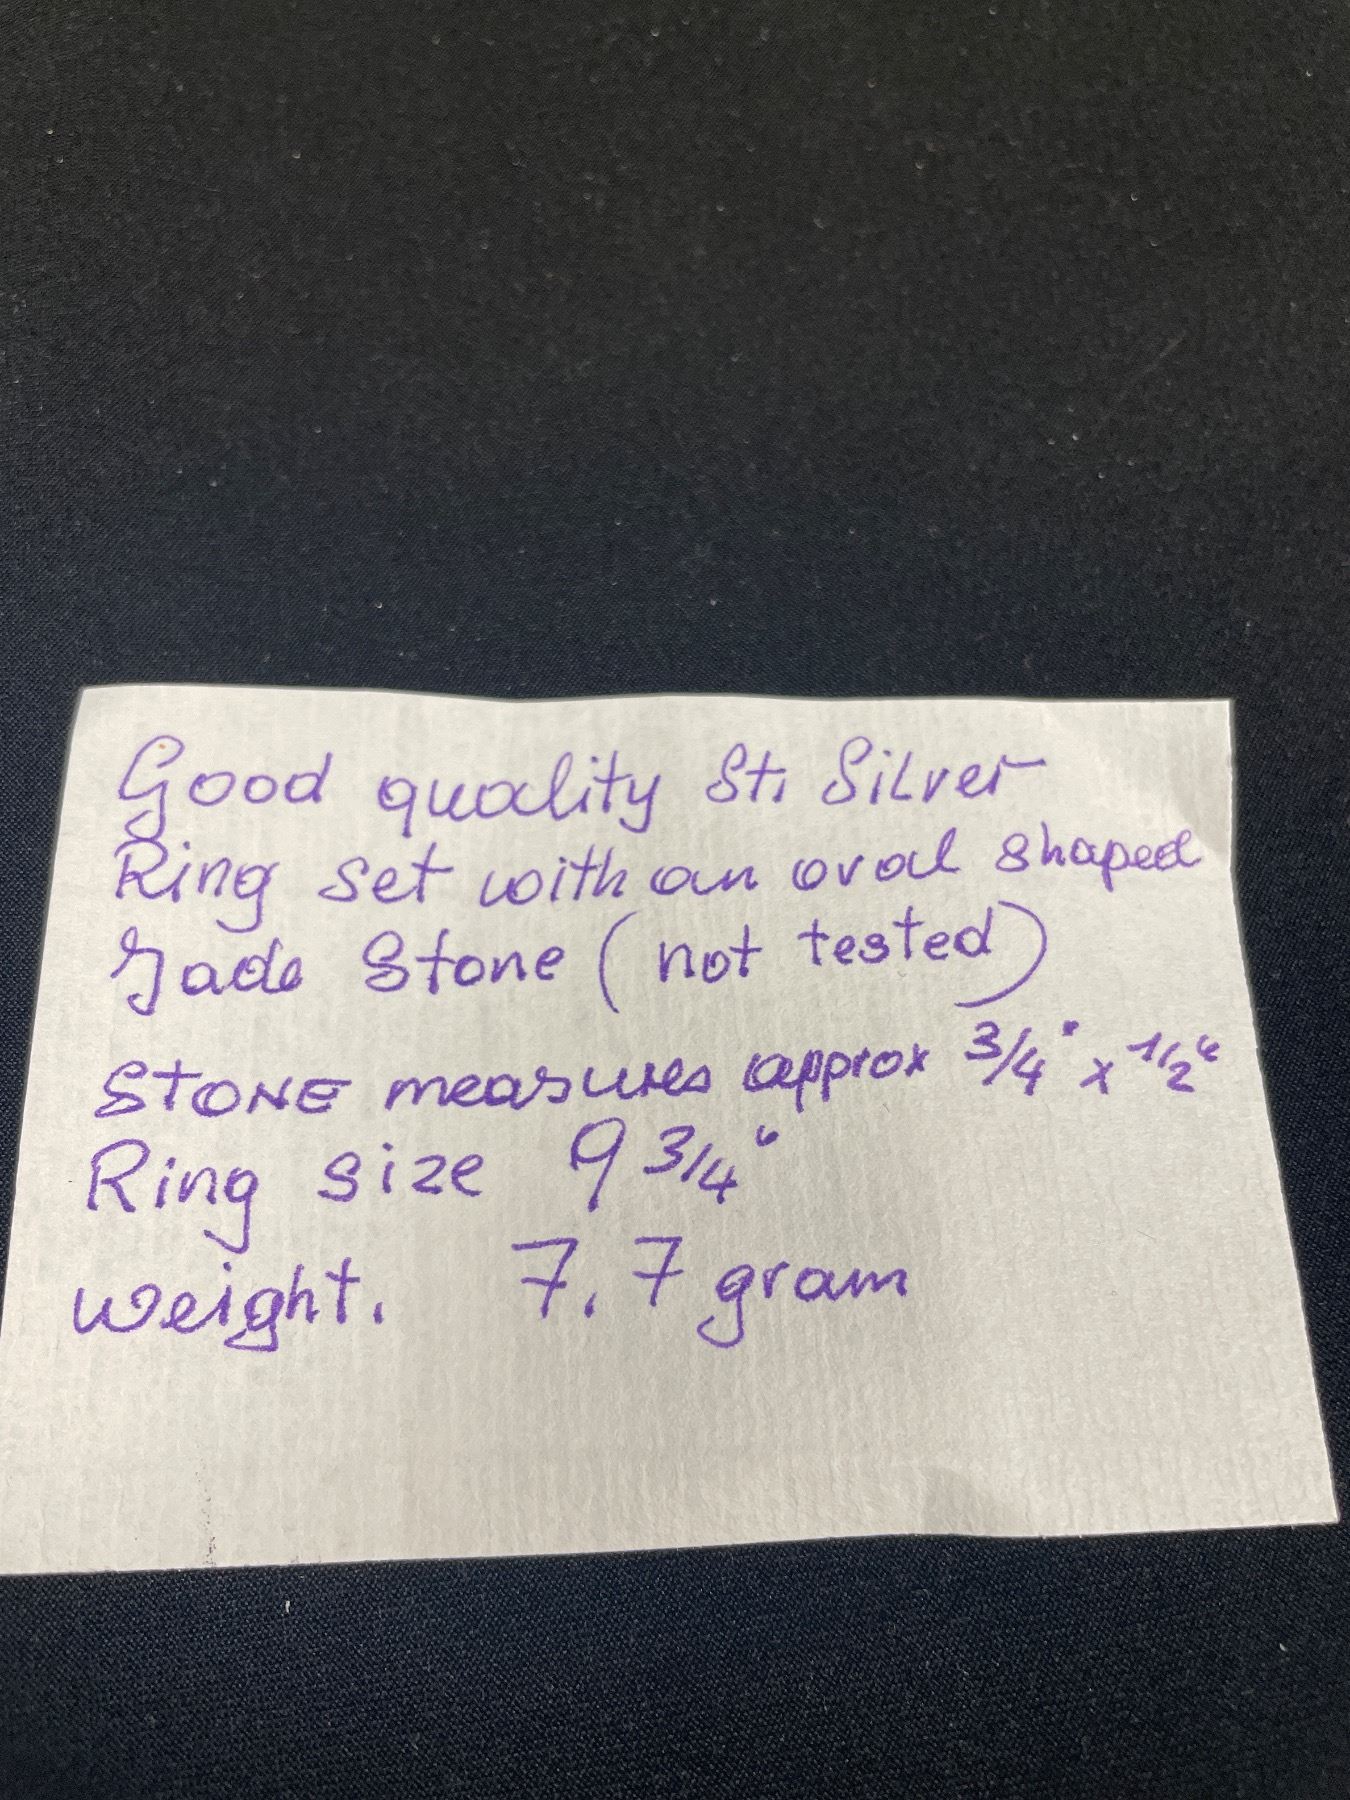 Good quality St. Silver
Ring set with an oval shaped
Jade Stone (not tested)
STONE measures approx 3/4" x 1/2"
Ring size 9 3/4"
weight. 7.7 gram